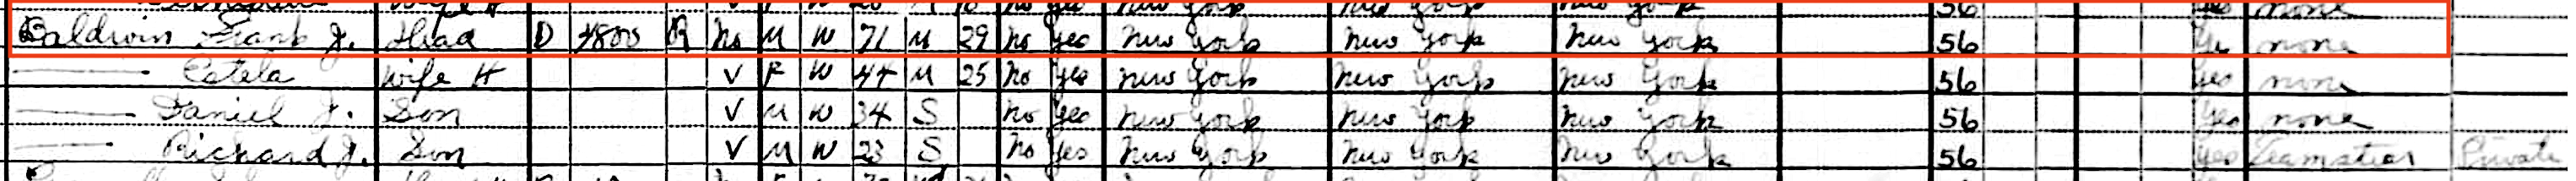 Wife H V F W 28 M 18 no yes New York New York New York 56 yes none
Baldwin Frank J. Head O 4800 R No M W 71 M 29 no yes New York New York New York 56 Yes none
—— Estela Wife H V F W 44 M 25 no yes New York New York New York 56 yes none
—— Daniel J. Son V M W 34 S no yes New York New York New York 56 yes none
—— Richard J. Son V M W 23 S no yes New York New York New York 56 yes Teamster Private